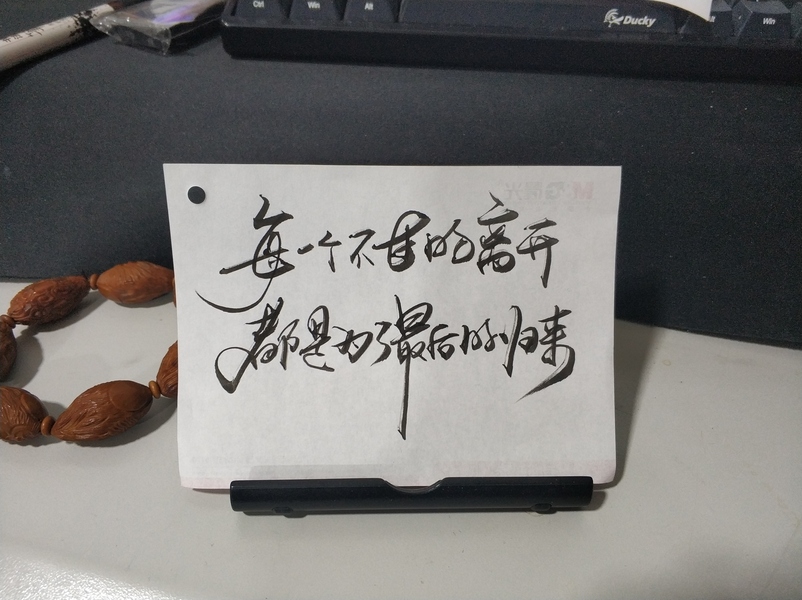 Ctrl Win Alt Ducky Win
每一个不甘的离开
都是为了最后的归来